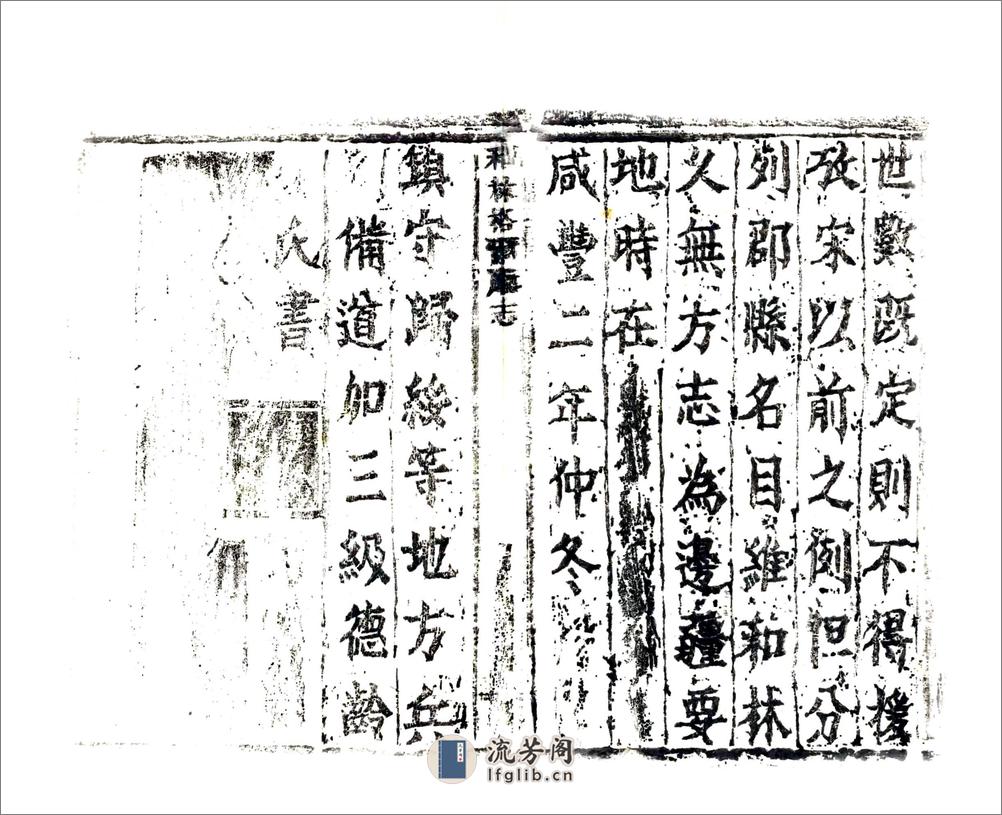 世數既定則不得援
攷宋以前之例但分
列郡縣名目維和林
久無方志為邊疆要
地時在
咸豐二年仲冬
和林格爾廳志
鎮守歸綏等地方兵
備道加三級德齡
氏書
流芳阁
lfglib.cn